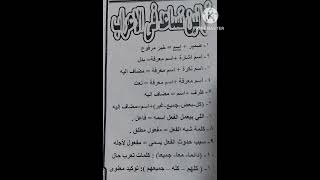 قوانين تساعد في الاعراب
١- ضمير + اسم = خبر مرفوع
٢- اسم اشارة + اسم معرفة = بدل
٣- اسم نكرة + اسم معرفة = مضاف اليه
٤- اسم معرفة + اسم معرفة = نعت
٥- ظرف + اسم = مضاف اليه
(كل-بعض-جميع-غير)+اسم=مضاف اليه
اللي بيعمل الفعل اسمه = فاعل
كلمة شبه الفعل = مفعول مطلق
سبب حدوث الفعل يسمى = مفعول لأجله
(دائما، معا، جميعا) : كلمات تعرب حال
(كلهم – كله – جميعهم) : توكيد معنوى